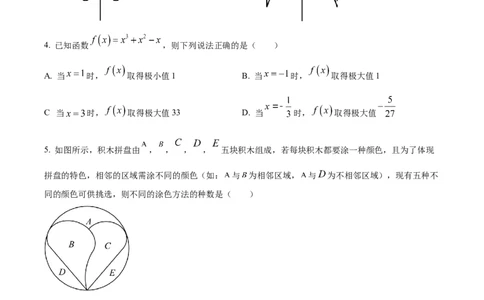 4. 已知函数 f(x)=x³+x²−x，则下列说法正确的是（ ）
A. 当 x=1 时，f(x) 取得极小值1 B. 当 x=−1 时，f(x) 取得极大值1
C 当 x=3 时，f(x) 取得极大值33 D. 当 x=-1/3 时，f(x) 取得极大值 −5/27
5. 如图所示，积木拼盘由 A，B，C，D，E 五块积木组成，若每块积木都要涂一种颜色，且为了体现
拼盘的特色，相邻的区域需涂不同的颜色（如：A与B为相邻区域，A与D为不相邻区域），现有五种不
同的颜色可供挑选，则不同的涂色方法的种数是（ ）
A
B C
D E